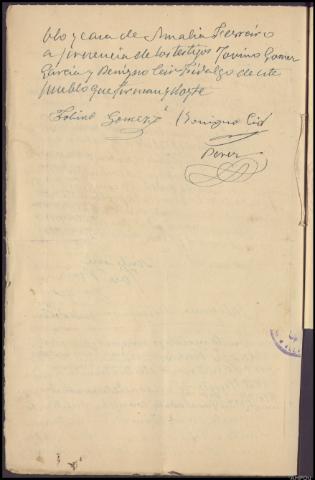 blo y casa de Amalia Ferreiro
a presencia de los testigos Jovino Gomez
Garcia y Benigno Cid Hidalgo de este
pueblo que firman y doy fe
Jobino Gomez Benigno Cid
Perez